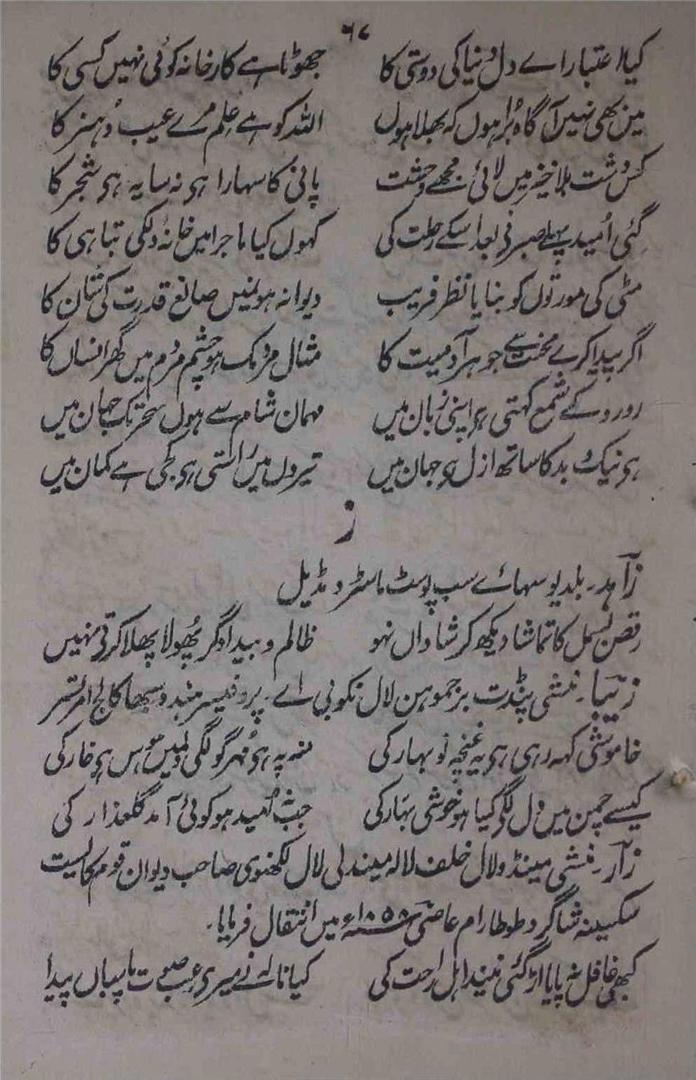 ۶۷
کیا اعتبار اے دل دنیا کی دوستی کا جھوٹا ہے کارخانہ کوئی نہیں کسی کا
میں بھی نہیں آگاہ بُرا ہوں کہ بھلا ہوں اللہ کو ہے علم مرے عیب و ہنر کا
کس دشت بلا خیز میں لائی مجھے وحشت پانی کا سہارا ہو نہ سایہ ہو شجر کا
گئی اُمید پہلے صبر نے بعد اسکے رحلت کی کہوں کیا ماجرا میں خانۂ دلکی تباہی کا
مٹی کی مورتوں کو بنایا نظر فریب دیوانہ ہوں میں صانع قدرت کی شان کا
اگر پیدا کرے محنت سے جوہر آدمیت کا مثال مردمک ہو چشم مردم میں گھر انساں کا
رو رو کے شمع کہتی ہر اپنی زبان میں مہمان شام سے ہوں سحر تک جہان میں
ہو نیک و بد کا ساتھ ازل سے جہان میں تیروں میں راستی ہو کجی ہے کمان میں
ز
زاہد۔ بلدیو سہائے سب پوسٹ ماسٹر
رقص بسمل کا تماشا دیکھ کر شاداں نہو ظالم و بیداد گر پھولا پھلا کرتے نہیں
زیبا۔ منشی پنڈت برجموہن لال نکوبی اے۔ پروفیسر ہندو سبھا کالج امرتسر
خاموشی کہہ رہی ہو یہ غنچہ نو بہار کی منہ پہ ہو مہر گو لگی دلمیں ہوس ہو خار کی
کیسے چمن میں دل لگے کیا ہو خوشی بہار کی جب نہ اُمید ہو کوئی آمد گلعذار کی
زار۔ منشی مینڈو لال خلف لالہ میندی لال لکھنوی صاحب دیوان قوم کایست
سکسینہ شاگرد طوطا رام عاصی ۱۸۵۸ء میں انتقال فرمایا۔
کبھی غافل نہ پایا اڑ گئی نیند اہل راحت کی کیا نالے نے میری عجب صورت پاسباں پیدا